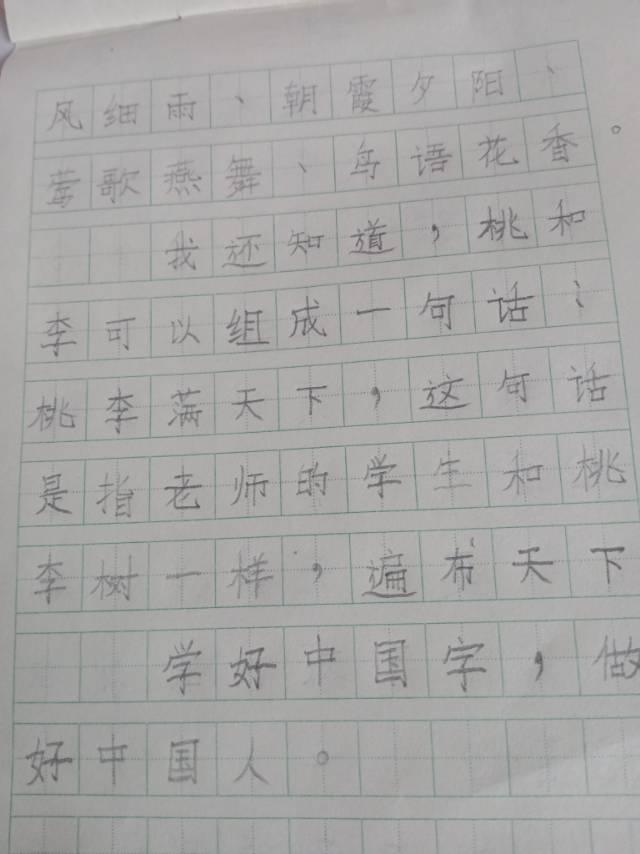 风细雨、朝霞夕阳、
莺歌燕舞、鸟语花香。
我还知道，桃和
李可以组成一句话：
桃李满天下，这句话
是指老师的学生和桃
李树一样，遍布天下
学好中国字，做
好中国人。